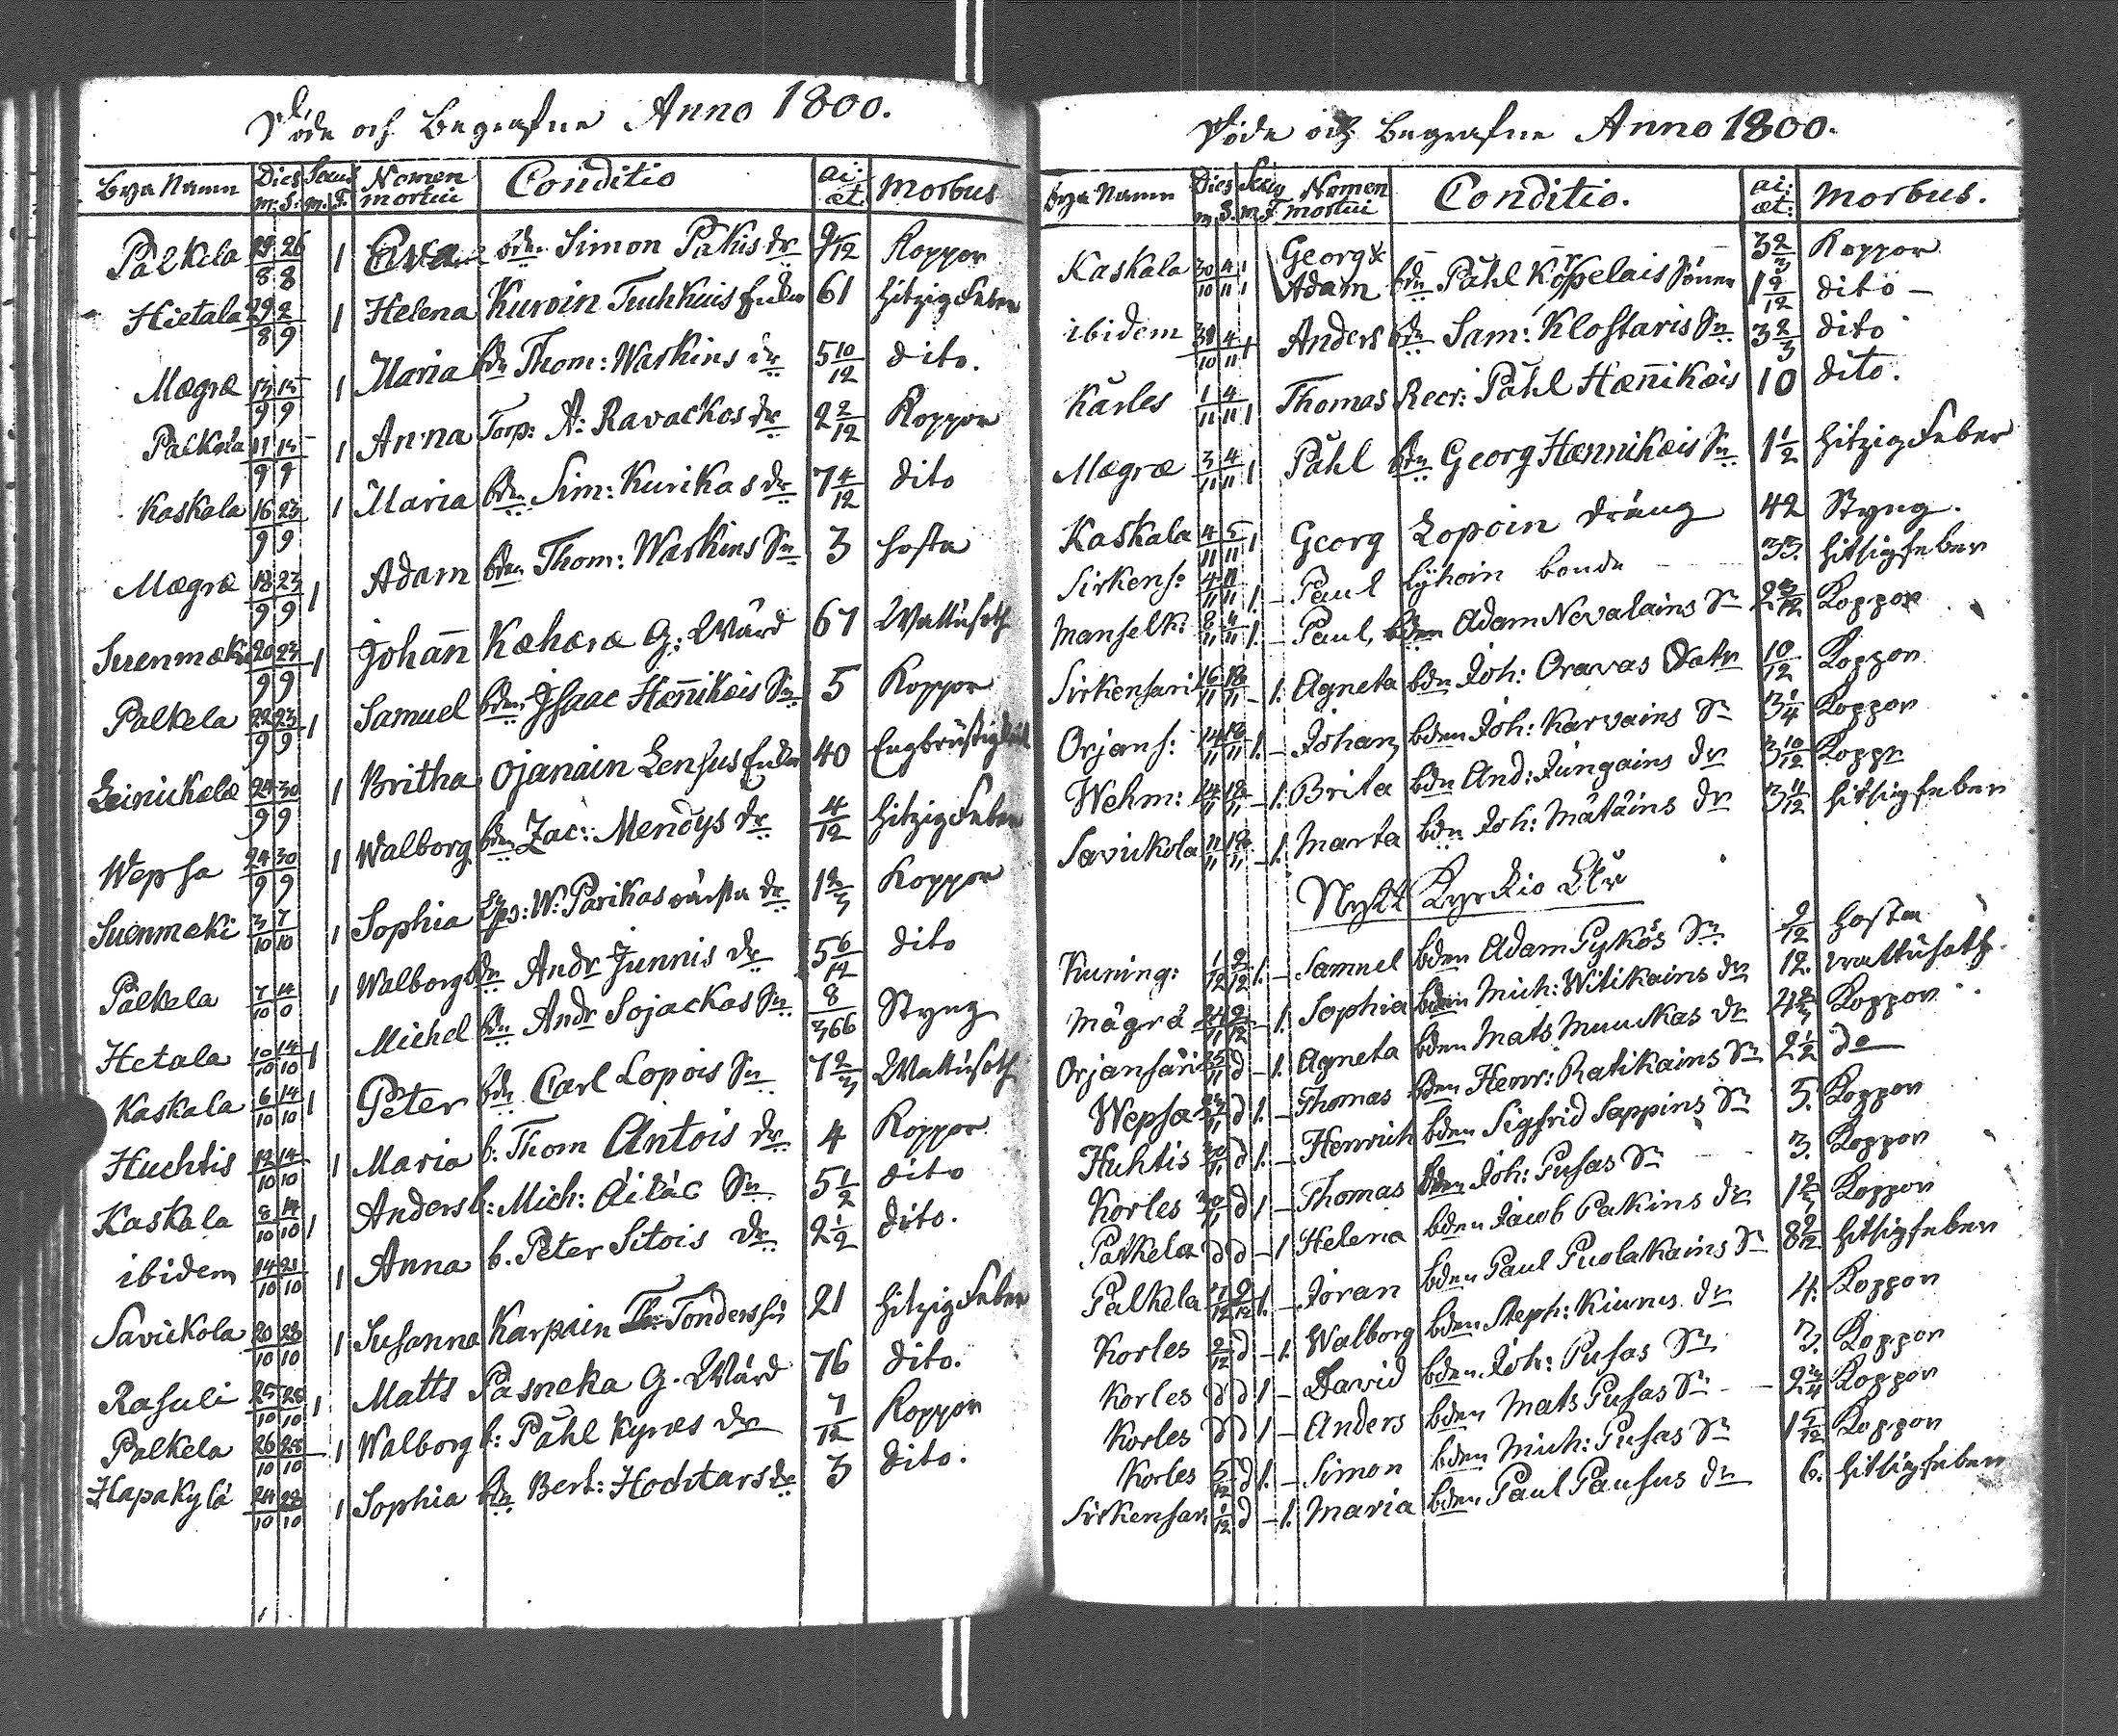 Döde och Begrafne Anno 1800.
Bya Namn Dies m. S. Sexus m. F. Nomen mortui Conditio ai: æt. Morbus
Palkela 23/8 26/8 1 Eva bdn Simon Pakis dr 9/12 Koppor
Hietala 29/8 2/9 1 Helena Kuroin Tuhkuis Enka 61 hitzig Feber
Mægræ 13/9 15/9 1 Maria bdn Thom: Waskins dr 5 10/12 dito.
Palkela 11/9 15/9 1 Anna Torp: A: Ravackos dr 2 2/12 Koppor
Kaskala 16/9 23/9 1 Maria bdn Sim: Kurikas dr 7 4/12 dito
Mægræ 18/9 23/9 1 Adam bdn Thom: Waskins Sn 3 hosta
Suenmæki 20/9 23/9 1 Johan Kæhæræ G: Wärd 67 Wattusoth
Palkela 22/9 23/9 1 Samuel bdn Isaac Hænikæis Sn 5 Koppor
Leinikælæ 24/9 30/9 1 Britha Ojanain Lensus Enka 40 Engbröstighet
Wepsa 24/9 30/9 1 Walborg bdn Zac: Mendys dr 4/12 hitzig Feber
Suenmæki 3/10 7/10 1 Sophia W: Parikas dr 1 2/3 Koppor
Palkela 7/10 14/10 1 Walborg bdn Andr Junnis dr 5 6/12 dito
Hetala 10/10 14/10 1 Michel bdn Andr Sojackas Sn 8/366 Styng
Kaskala 6/10 14/10 1 Peter bdn Carl Lopois Sn 7 2/3 Wattusoth
Huchtis 12/10 14/10 1 Maria b. Thom Antois dr 4 Koppor
Kaskala 8/10 14/10 1 Anders b: Mich: Äiläs Sn 5 1/2 dito
ibidem 14/10 21/10 1 Anna b. Peter Sitois dr 2 1/2 dito.
Savikola 20/10 23/10 1 Susanna Karpain Tonders hu 21 hitzig Feber
Rasuli 25/10 28/10 1 Matts Pasneka G. Wärd 76 dito.
Palkela 26/10 28/10 1 Walborg b: Påhl Kyræs dr 7/12 Koppor
Hapakylä 24/10 28/10 1 Sophia bdn Bert: Hochtars dr 3 dito.
Döde och Begrafne Anno 1800.
Bya Namn Dies m. S. Sexus m. F. Nomen mortui Conditio. ai: æt: Morbus.
Kaskala 30/10 4/11 1 Georg & 3 2/3 Koppor
1 Adam bdn Påhl Korpelais Söner 1 9/12 dito
ibidem 30/10 4/11 1 Anders bdn Sam: Klostaris Sn 3 2/3 dito
Karles 1/11 4/11 1 Thomas Recr: Påhl Hænikæis 10 dito.
Mægræ 3/11 4/11 1 Påhl bdn Georg Hænnikæis Sn 1 1/2 hitzig Feber
Kaskala 4/11 5/11 1 Georg Lopoin dräng 42 Styng.
Sirkens: 4/11 11/11 1. Paul Lyhoin bonde 33. hitsig feber
Manselk: 8/11 11/11 1. Paul, bden Adam Nevalains Sn Koppor
Sirkensari 16/11 18/11 1. Agneta bdn Joh: Oravas Dotr 10/12 Koppor
Orjans: 14/11 18/11 1. Johan bden Joh: Karvains Sn 3 1/4 Koppor
Wehm: 14/11 18/11 1. Brita bdn And: Jungains dr 3 10/12 Koppr
Savikola 11/11 18/11 1. Marta bdn Joh: Mätäins dr 3 11/12 hitsig feber
Nytt Kyrckio Åhr
Kuning: 1/12 2/12 1. Samuel bden Adam Pykös Sn 9/12 hosten
Mägrä 24/11 2/12 1. Sophia bden Mich: Witikains dr 12. wattusoth.
Orjansäri 25/11 d 1. Agneta bden Mats Muuckas dr Koppor
Wepsa d 1. Thomas bden Henr: Ratikains Sn 2 1/2 do
Huhtis 30/11 d 1. Henrich bden Sigfrid Seppins Sn 5. Koppor
Korles 30/11 d 1 Thomas bden Joh: Pusas Sn 3. Koppor
Palkela d d 1 Helena bden Jacob Pakins dr Koppor
Palkela 1/12 9/12 1. Jöran bden Paul Puolakains Sn 8 9/12 hitsig feber
Korles 2/12 d 1. Walborg bden Steph: Kiurus dr 4. Koppor
Korles d d 1 David bden Joh: Pusas Sn 3. Koppor
Korles d d 1 Anders bden Mats Pusas Sn 2 3/4 Koppor
Korles 5/12 d 1. Simon bden Mich: Pusas Sn 1 5/12 Koppor
Sirkensari 1/12 d 1. Maria bden Paul Pausus dr 6. hitsig feber